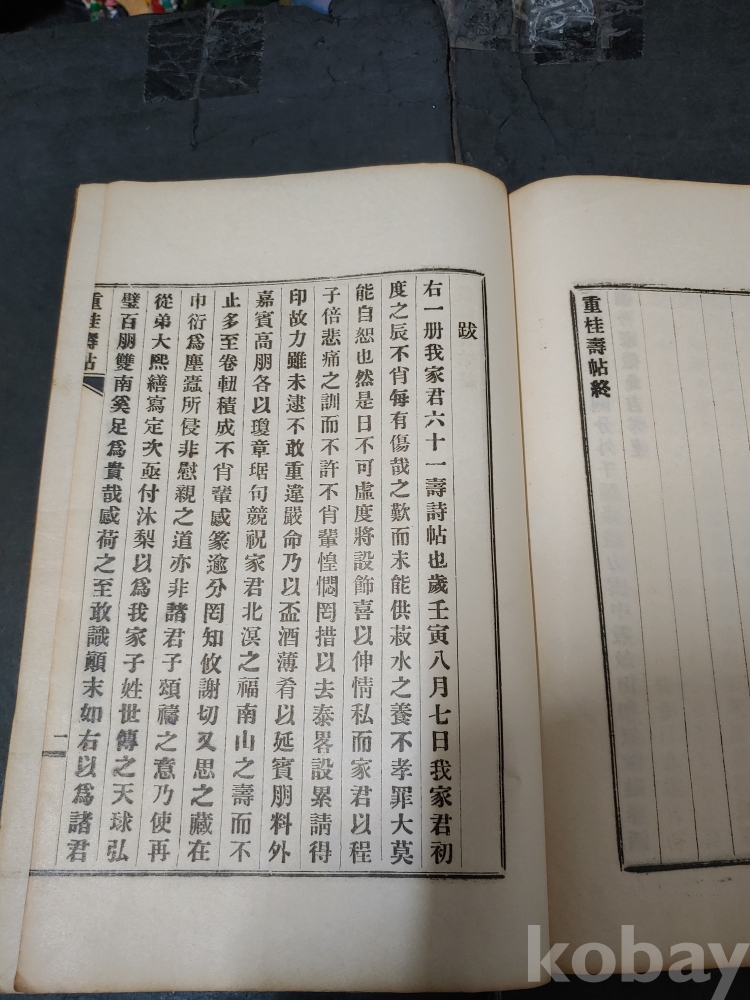 重桂壽帖終
跋
右一册我家君六十一壽詩帖也歲壬寅八月七日我家君初
度之辰不肖每有傷哉之歎而未能供菽水之養不孝罪大莫
能自恕也然是日不可虛度將設飾喜以伸情私而家君以程
子倍悲痛之訓而不許不肖輩惶憫罔措以去泰畧設累請得
印故力雖未逮不敢重違嚴命乃以盃酒薄肴以延賓朋料外
嘉賓高朋各以瓊章琚句競祝家君北溟之福南山之壽而不
止多至卷軸積成不肖輩感篆逾分罔知攸謝切又思之藏在
巾衍爲塵蠹所侵非慰親之道亦非諸君子頌禱之意乃使再
從弟大熙繕寫定次亟付沐梨以爲我家子姓世傳之天球弘
璧百朋雙南奚足爲貴哉感荷之至敢識顚末如右以爲諸君
重桂壽帖
一
kobay